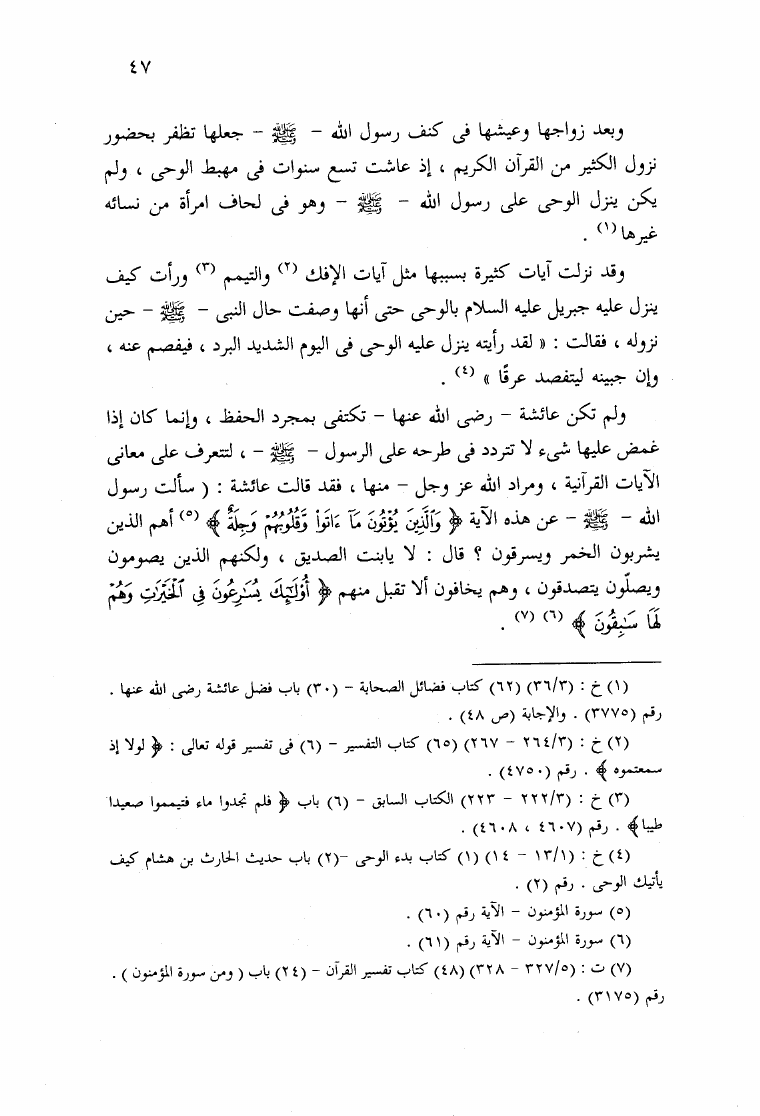 ٤٧
وبعد زواجها وعيشها فى كنف رسول الله – ﷺ – جعلها تظفر بحضور
نزول الكثير من القرآن الكريم ، إذ عاشت تسع سنوات فى مهبط الوحى ، ولم
يكن ينزل الوحى على رسول الله – ﷺ – وهو فى لحاف امرأة من نسائه
غيرها (١) .
وقد نزلت آيات كثيرة بسببها مثل آيات الإفك (٢) والتيمم (٣) ورأت كيف
ينزل عليه جبريل عليه السلام بالوحى حتى أنها وصفت حال النبى – ﷺ – حين
نزوله ، فقالت : « لقد رأيته ينزل عليه الوحى فى اليوم الشديد البرد ، فيفصم عنه ،
وإن جبينه ليتفصد عرقًا » (٤) .
ولم تكن عائشة – رضى الله عنها – تكتفى بمجرد الحفظ ، وإنما كان إذا
غمض عليها شىء لا تتردد فى طرحه على الرسول – ﷺ – ، لتتعرف على معانى
الآيات القرآنية ، ومراد الله عز وجل – منها ، فقد قالت عائشة : ( سألت رسول
الله – ﷺ – عن هذه الآية ﴿ وَٱلَّذِينَ يُؤْتُونَ مَآ ءَاتَوا۟ وَّقُلُوبُهُمْ وَجِلَةٌ ﴾ (٥) أهم الذين
يشربون الخمر ويسرقون ؟ قال : لا يابنت الصديق ، ولكنهم الذين يصومون
ويصلّون يتصدقون ، وهم يخافون ألا تقبل منهم ﴿ أُو۟لَٰٓئِكَ يُسَٰرِعُونَ فِى ٱلْخَيْرَٰتِ وَهُمْ
لَهَا سَٰبِقُونَ ﴾ (٦) (٧) .
(١) خ : (٣٦/٣) (٦٢) كتاب فضائل الصحابة – (٣٠) باب فضل عائشة رضى الله عنها .
رقم (٣٧٧٥) . والإجابة (ص ٤٨) .
(٢) خ : (٢٦٤/٣ – ٢٦٧) (٦٥) كتاب التفسير – (٦) فى تفسير قوله تعالى : ﴿ لولا إذ
سمعتموه ﴾ . رقم (٤٧٥٠) .
(٣) خ : (٢٢٢/٣ – ٢٢٣) الكتاب السابق – (٦) باب ﴿ فلم تجدوا ماء فتيمموا صعيدا
طيبا﴾ . رقم (٤٦٠٧ ، ٤٦٠٨) .
(٤) خ : (١٣/١ – ١٤) (١) كتاب بدء الوحى –(٢) باب حديث الحارث بن هشام كيف
يأتيك الوحى . رقم (٢) .
(٥) سورة المؤمنون – الآية رقم (٦٠) .
(٦) سورة المؤمنون – الآية رقم (٦١) .
(٧) ت : (٣٢٧/٥ – ٣٢٨) (٤٨) كتاب تفسير القرآن – (٢٤) باب ( ومن سورة المؤمنون ) .
رقم (٣١٧٥) .